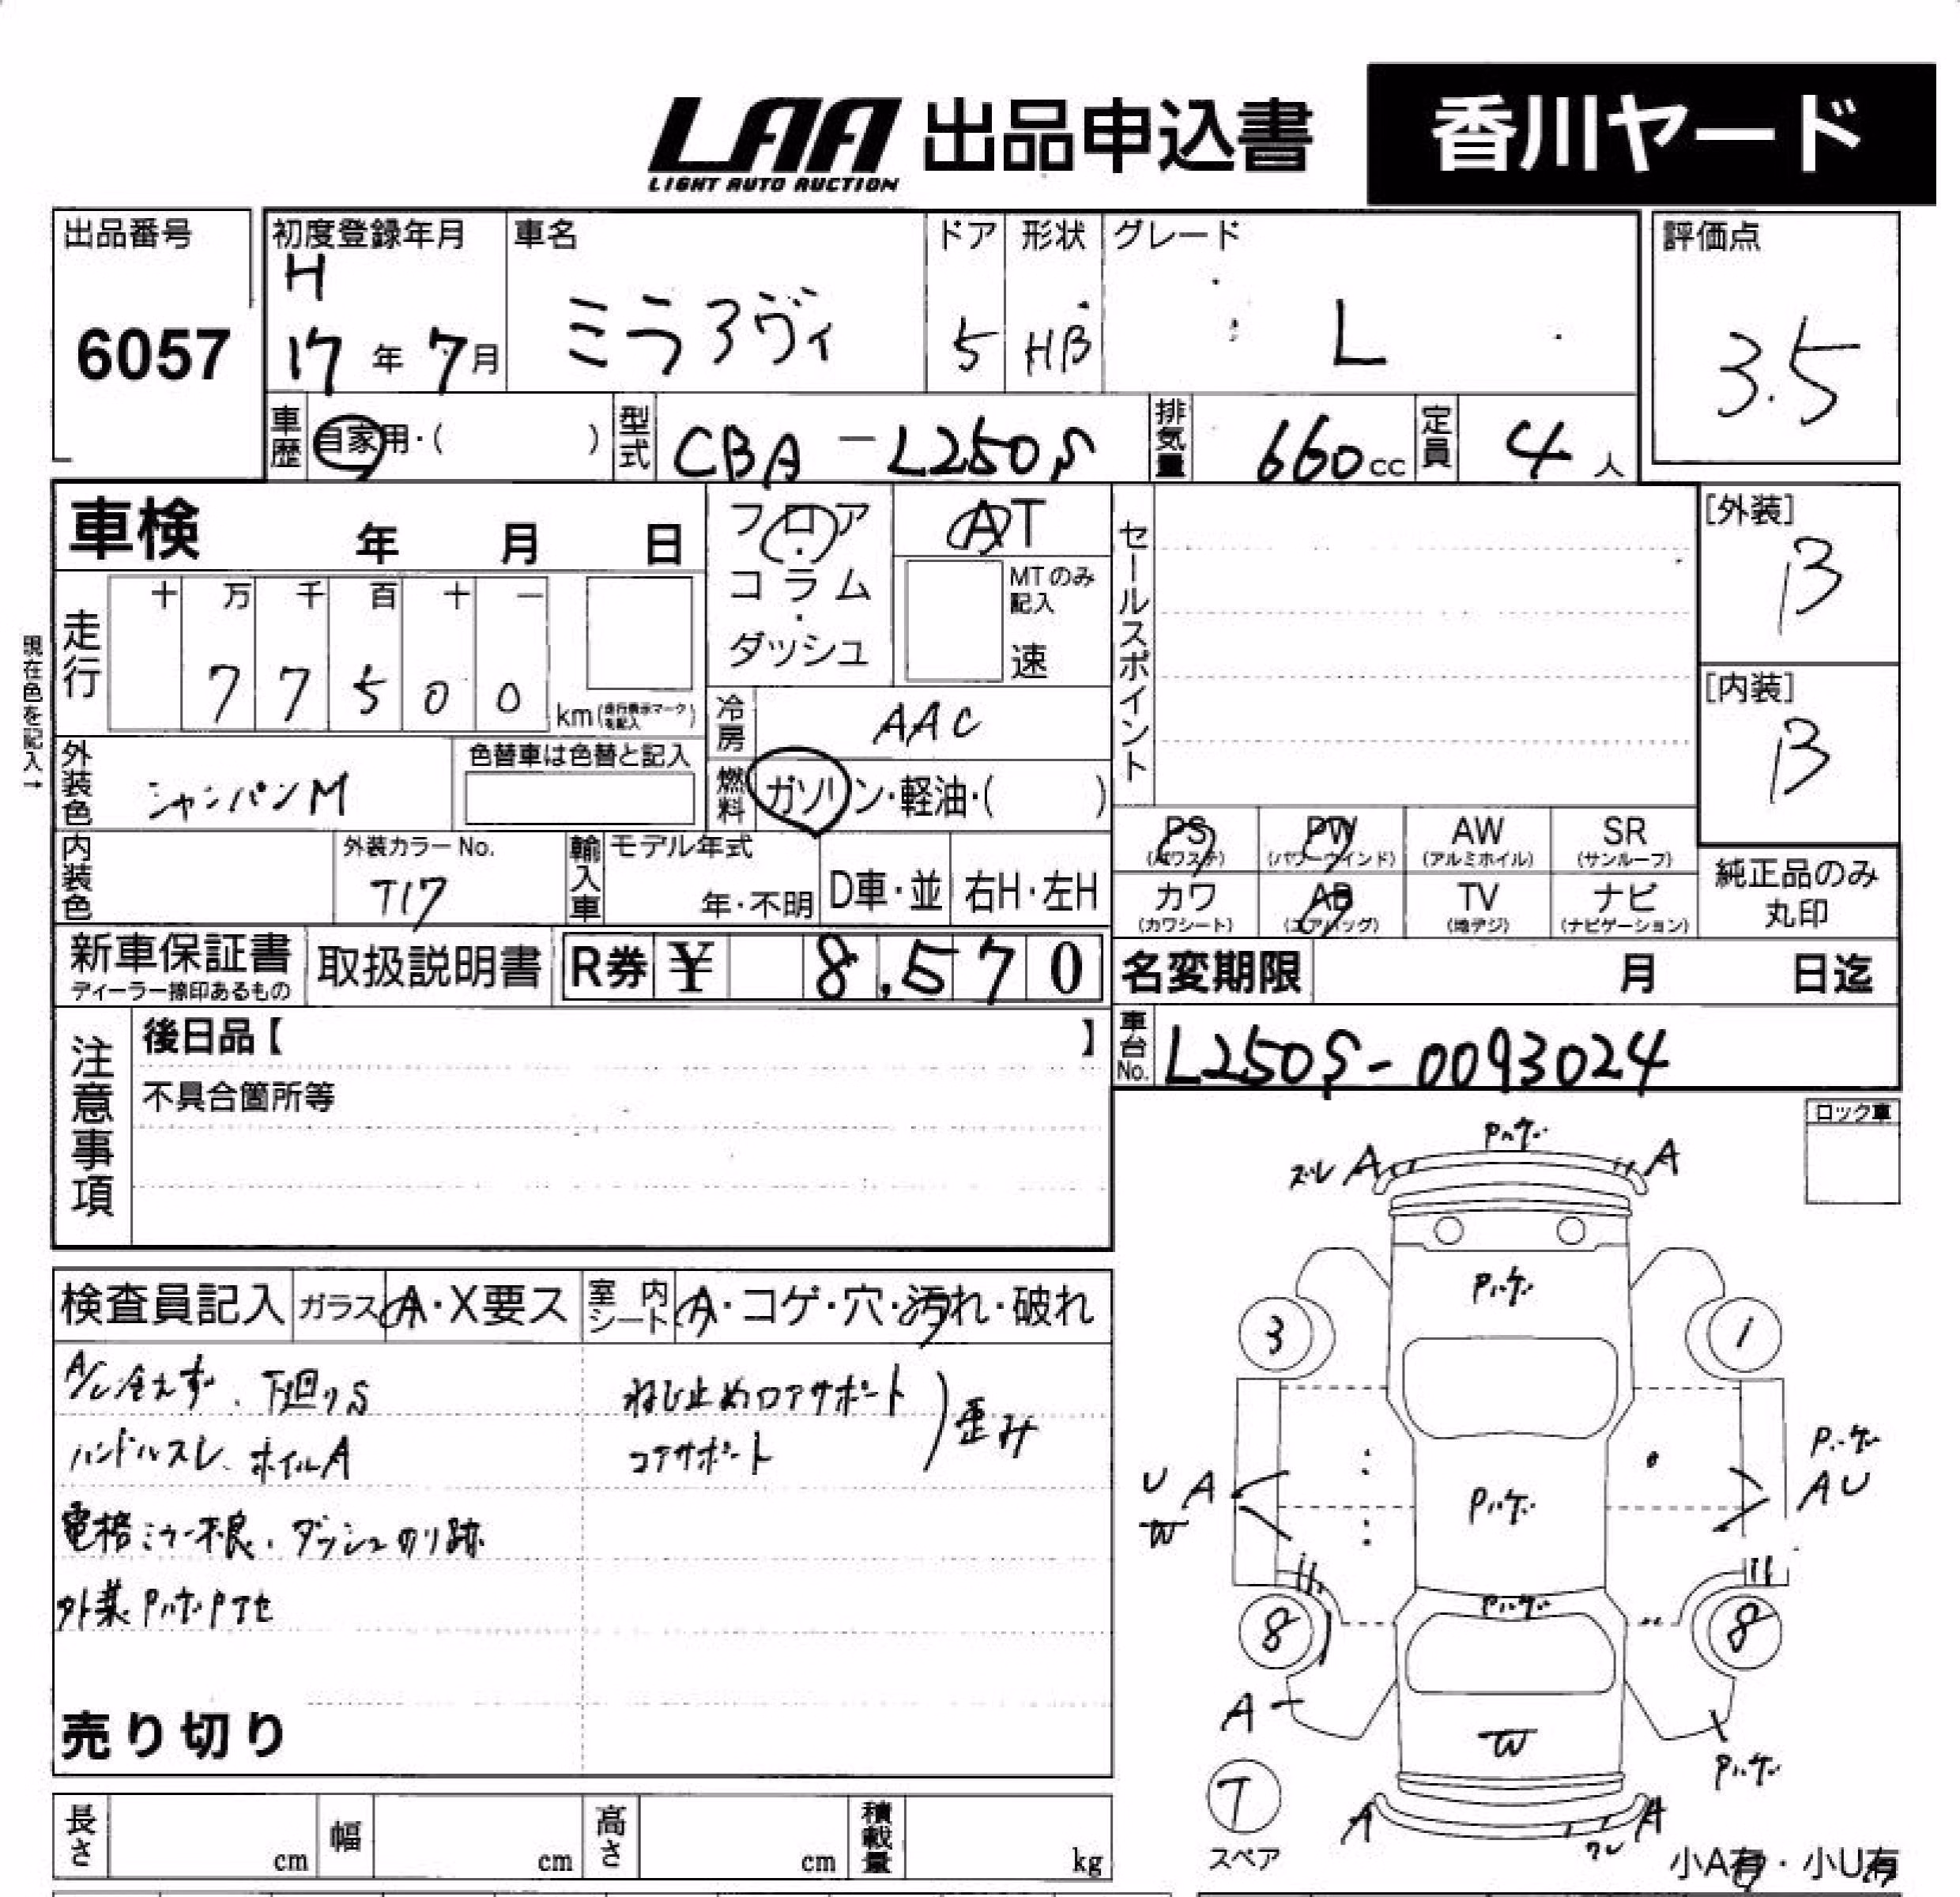 LAA 出品申込書 香川ヤード
LIGHT AUTO AUCTION
出品番号
6057
初度登録年月
H
17年 7月
車名
ミラアヴィ
ドア
5
形状
HB
グレード
L
評価点
3.5
車歴 自家用・( )
型式 CBA-L250S
排気量 660cc
定員 4人
車検 年 月 日
フロア・コラム・ダッシュ
AT
MTのみ記入
速
セールスポイント
[外装]
B
[内装]
B
現在色を記入→
走行
十 万 千 百 十 一
7 7 5 0 0
km(走行表示マークを記入)
冷房 AAC
外装色 シャンパンM
色替車は色替と記入
燃料 ガソリン・軽油・( )
内装色
外装カラーNo.
T17
輸入車
モデル年式
年・不明
D車・並
右H・左H
PS (パワステ)
PW (パワーウインド)
AW (アルミホイル)
SR (サンルーフ)
カワ (カワシート)
AB (エアバッグ)
TV (地デジ)
ナビ (ナビゲーション)
純正品のみ丸印
新車保証書
ディーラー捺印あるもの
取扱説明書
R券 ¥ 8,570
名変期限 月 日迄
車台No. L250S-0093024
注意事項
後日品【 】
不具合箇所等
ロック車
検査員記入
ガラス A・X要ス
室内シート A・コゲ・穴・汚れ・破れ
A/C冷えず、下廻りS
ハンドルスレ、ホイルA
電格ミラー不良、ダッシュのり跡
外装Pハゲ・Pアセ
ねじ止めロアサポート
コアサポート
歪み
売り切り
Pハゲ
ズレ A
A
Pハゲ
3
1
U A
W
Pハゲ
Pハゲ
A U
Pハゲ
8
8
A
W
Pハゲ
T
スペア
A
A
ワレ
小A有・小U有
長さ cm
幅 cm
高さ cm
積載量 kg